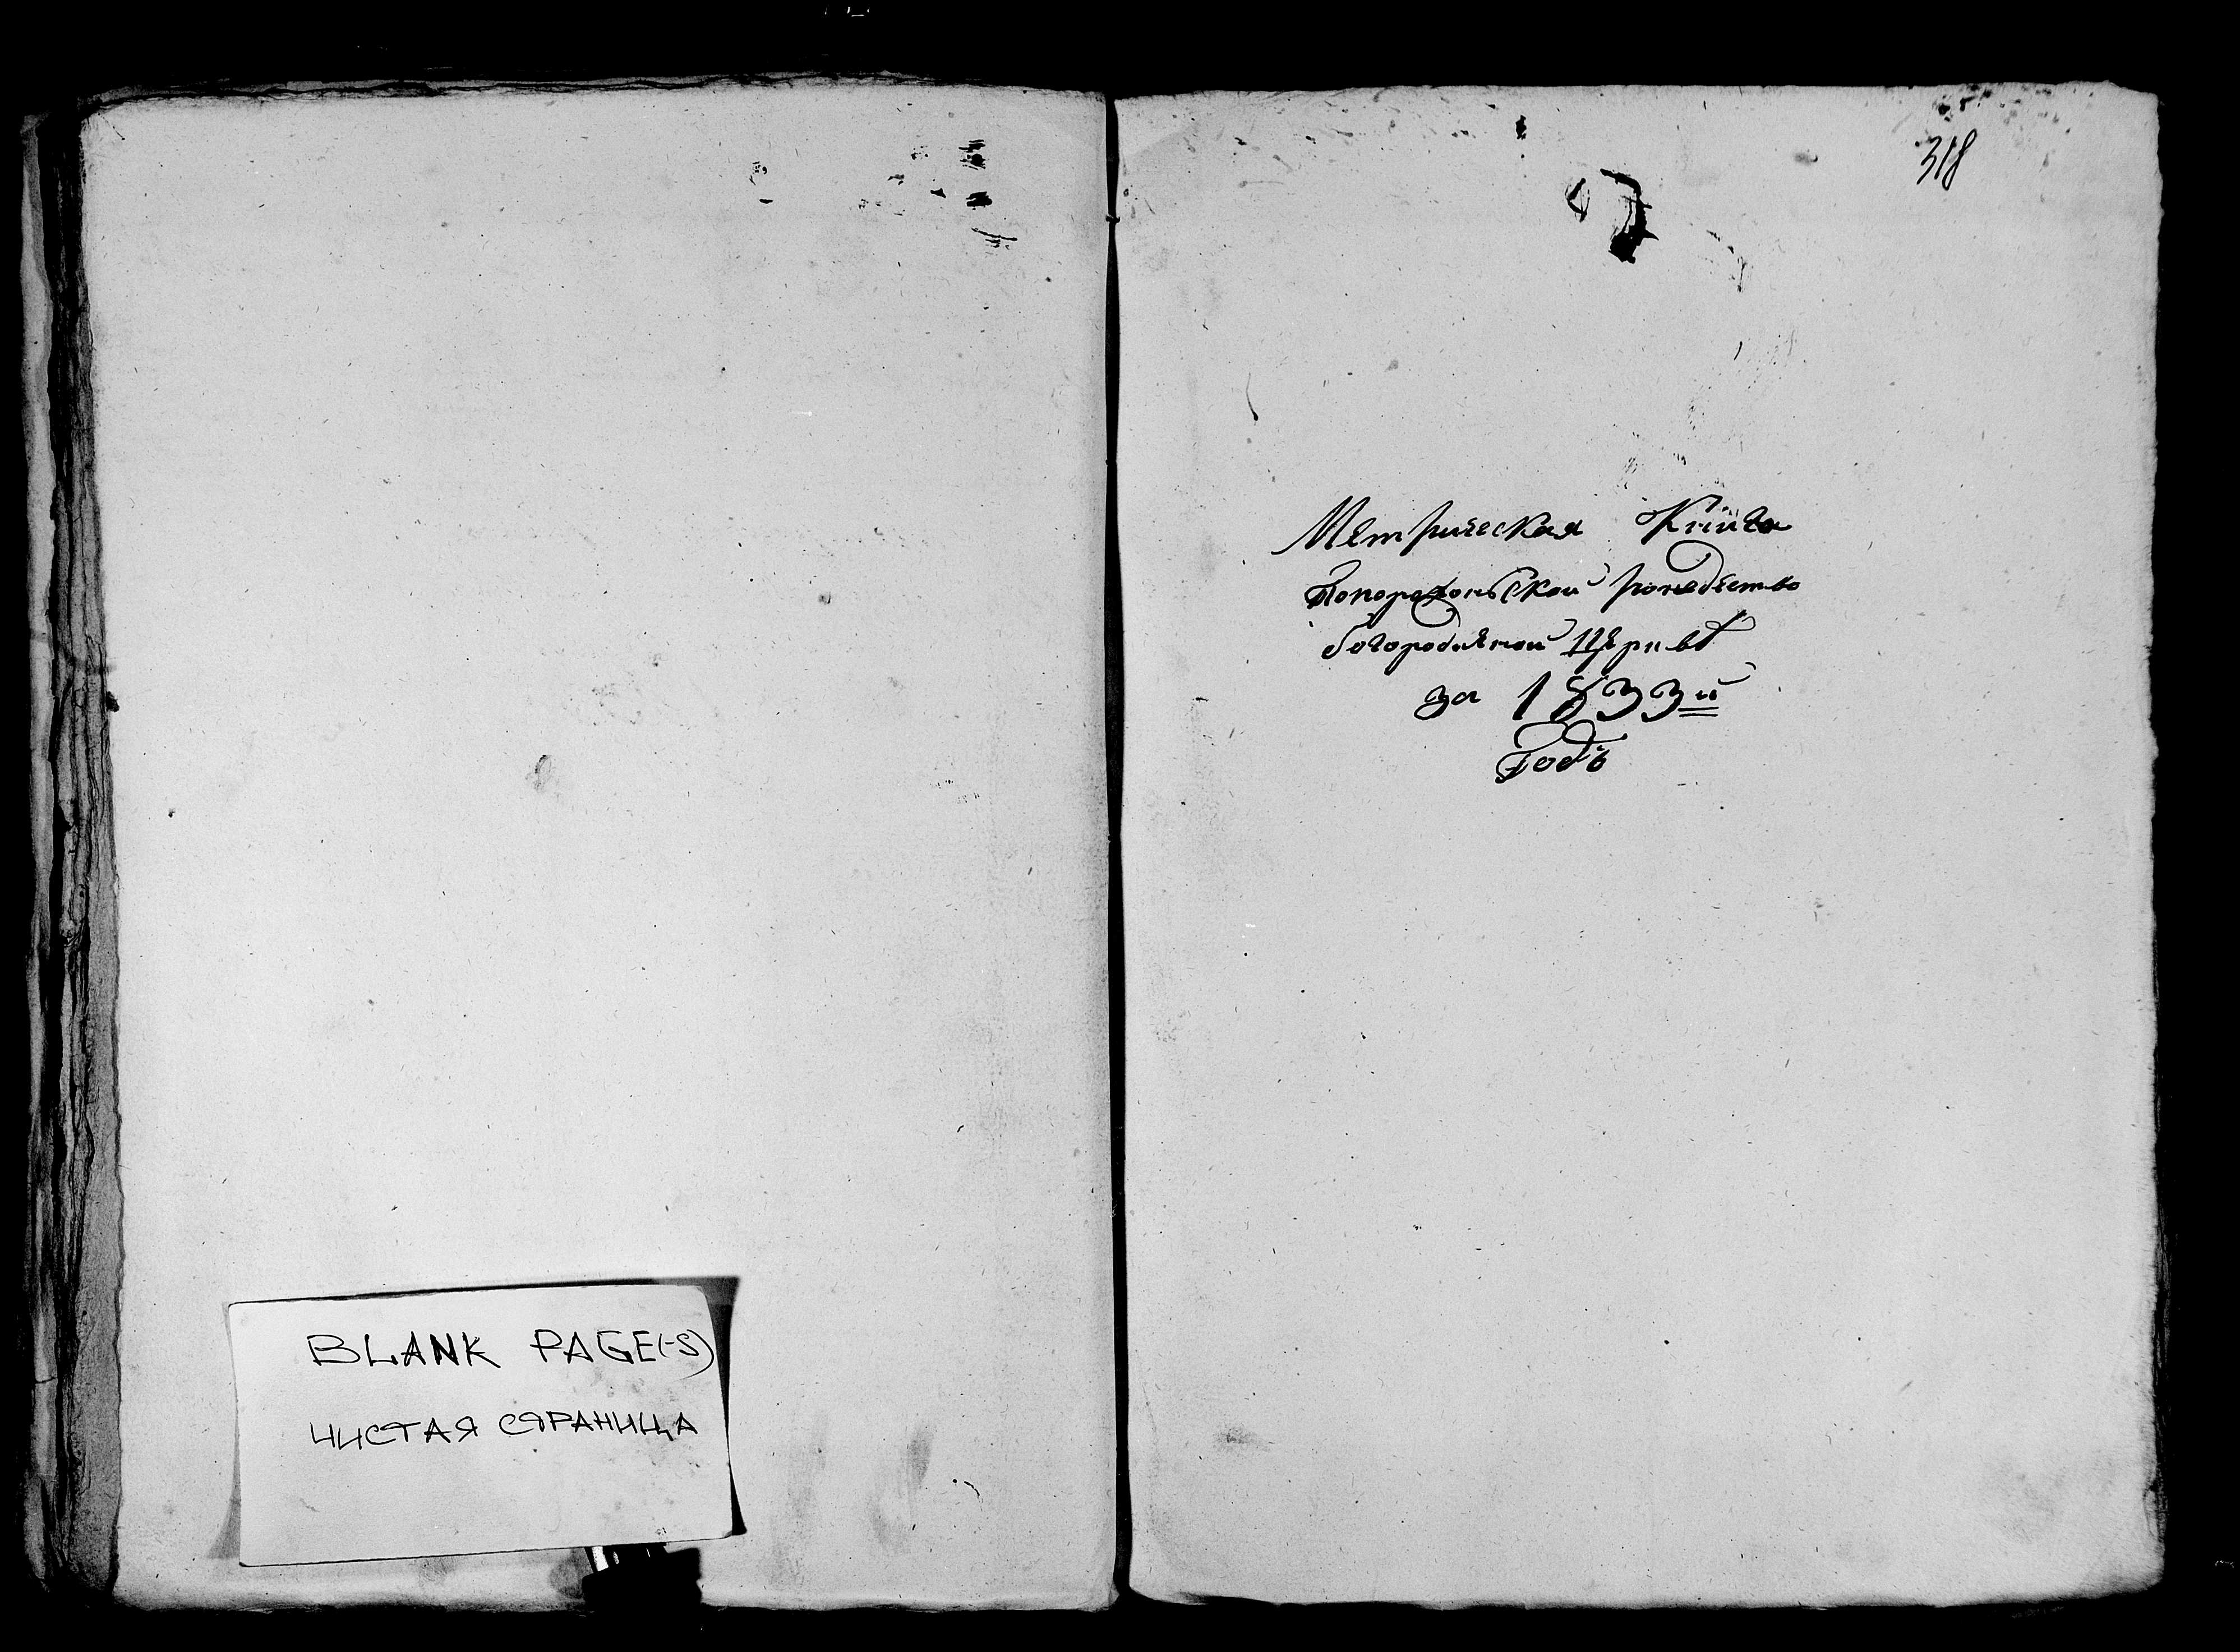 BLANK PAGE(-S)
ЧИСТАЯ СТРАНИЦА
318
Метрическая Книга
рождество
богородичной Церкви
за 1833й
Годъ